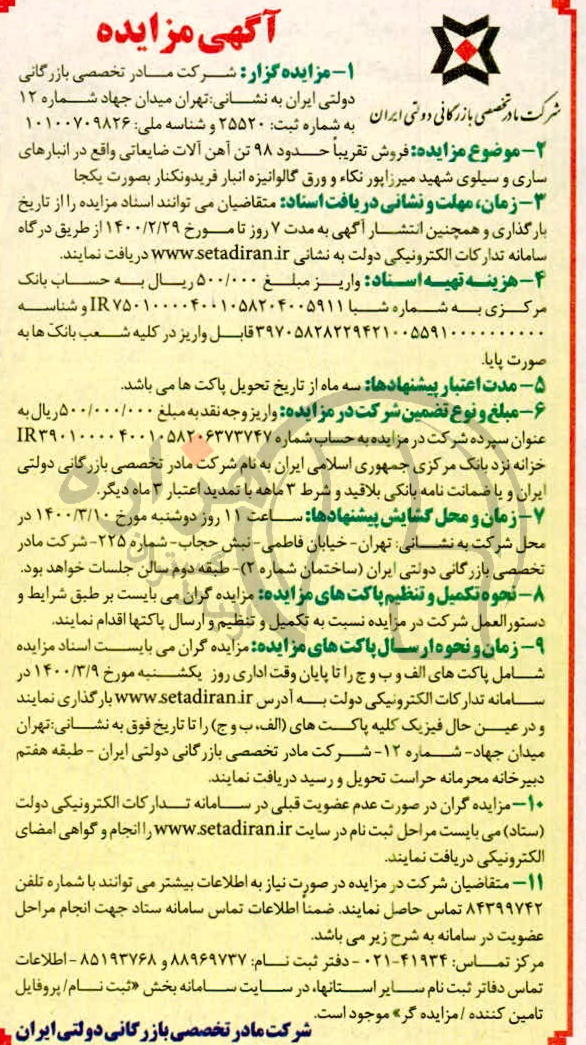 آگهی مزایده
شرکت مادر تخصصی بازرگانی دولتی ایران
۱- مزایده گزار: شرکت مادر تخصصی بازرگانی
دولتی ایران به نشانی: تهران میدان جهاد شماره ۱۲
به شماره ثبت: ۲۵۵۲۰ و شناسه ملی: ۱۰۱۰۰۷۰۹۸۲۶
۲- موضوع مزایده: فروش تقریباً حدود ۹۸ تن آهن آلات ضایعاتی واقع در انبارهای
ساری و سیلوی شهید میرزاپور نکاء و ورق گالوانیزه انبار فریدونکنار بصورت یکجا
۳- زمان، مهلت و نشانی دریافت اسناد: متقاضیان می توانند اسناد مزایده را از تاریخ
بارگذاری و همچنین انتشار آگهی به مدت ۷ روز تا مورخ ۱۴۰۰/۲/۲۹ از طریق درگاه
سامانه تدارکات الکترونیکی دولت به نشانی www.setadiran.ir دریافت نمایند.
۴- هزینه تهیه اسناد: واریز مبلغ ۵۰۰/۰۰۰ ریال به حساب بانک
مرکزی به شماره شبا IR۷۵۰۱۰۰۰۰۴۰۰۱۰۵۸۲۰۴۰۰۵۹۱۱ و شناسه
۳۹۷۰۵۸۲۸۲۲۹۴۲۱۰۰۵۵۹۱۰۰۰۰۰۰۰۰۰۰ قابل واریز در کلیه شعب بانک ها به
صورت پایا.
۵- مدت اعتبار پیشنهادها: سه ماه از تاریخ تحویل پاکت ها می باشد.
۶- مبلغ و نوع تضمین شرکت در مزایده: واریز وجه نقد به مبلغ ۵۰۰/۰۰۰/۰۰۰ ریال به
عنوان سپرده شرکت در مزایده به حساب شماره IR۳۹۰۱۰۰۰۰۴۰۰۱۰۵۸۲۰۶۳۷۳۷۴۷
خزانه نزد بانک مرکزی جمهوری اسلامی ایران به نام شرکت مادر تخصصی بازرگانی دولتی
ایران و یا ضمانت نامه بانکی بلاقید و شرط ۳ ماهه با تمدید اعتبار ۳ ماه دیگر.
۷- زمان و محل گشایش پیشنهادها: ساعت ۱۱ روز دوشنبه مورخ ۱۴۰۰/۳/۱۰ در
محل شرکت به نشانی: تهران- خیابان فاطمی- نبش حجاب- شماره ۲۲۵- شرکت مادر
تخصصی بازرگانی دولتی ایران (ساختمان شماره ۲)- طبقه دوم سالن جلسات خواهد بود.
۸- نحوه تکمیل و تنظیم پاکت های مزایده: مزایده گران می بایست بر طبق شرایط و
دستورالعمل شرکت در مزایده نسبت به تکمیل و تنظیم و ارسال پاکتها اقدام نمایند.
۹- زمان و نحوه ارسال پاکت های مزایده: مزایده گران می بایست اسناد مزایده
شامل پاکت های الف و ب و ج را تا پایان وقت اداری روز یکشنبه مورخ ۱۴۰۰/۳/۹ در
سامانه تدارکات الکترونیکی دولت به آدرس www.setadiran.ir بارگذاری نمایند
و در عین حال فیزیک کلیه پاکت های (الف، ب و ج) را تا تاریخ فوق به نشانی: تهران
میدان جهاد- شماره ۱۲- شرکت مادر تخصصی بازرگانی دولتی ایران - طبقه هفتم
دبیرخانه محرمانه حراست تحویل و رسید دریافت نمایند.
۱۰- مزایده گران در صورت عدم عضویت قبلی در سامانه تدارکات الکترونیکی دولت
(ستاد) می بایست مراحل ثبت نام در سایت www.setadiran.ir را انجام و گواهی امضای
الکترونیکی دریافت نمایند.
۱۱- متقاضیان شرکت در مزایده در صورت نیاز به اطلاعات بیشتر می توانند با شماره تلفن
۸۴۳۹۹۷۴۲ تماس حاصل نمایند. ضمناً اطلاعات تماس سامانه ستاد جهت انجام مراحل
عضویت در سامانه به شرح زیر می باشد.
مرکز تماس: ۴۱۹۳۴-۰۲۱ - دفتر ثبت نام: ۸۸۹۶۹۷۳۷ و ۸۵۱۹۳۷۶۸ - اطلاعات
تماس دفاتر ثبت نام سایر استانها، در سایت سامانه بخش «ثبت نام/ پروفایل
تامین کننده / مزایده گر» موجود است.
شرکت مادر تخصصی بازرگانی دولتی ایران